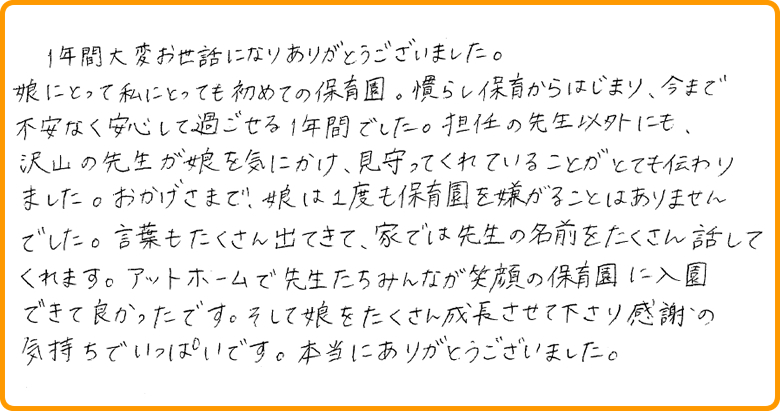 1年間大変お世話になりありがとうございました。
娘にとって私にとっても初めての保育園。慣らし保育からはじまり、今まで
不安なく安心して過ごせる1年間でした。担任の先生以外にも、
沢山の先生が娘を気にかけ、見守ってくれていることがとても伝わり
ました。おかげさまで、娘は1度も保育園を嫌がることはありません
でした。言葉もたくさん出てきて、家では先生の名前をたくさん話して
くれます。アットホームで先生たちみんなが笑顔の保育園に入園
できて良かったです。そして娘をたくさん成長させて下さり感謝の
気持ちでいっぱいです。本当にありがとうございました。